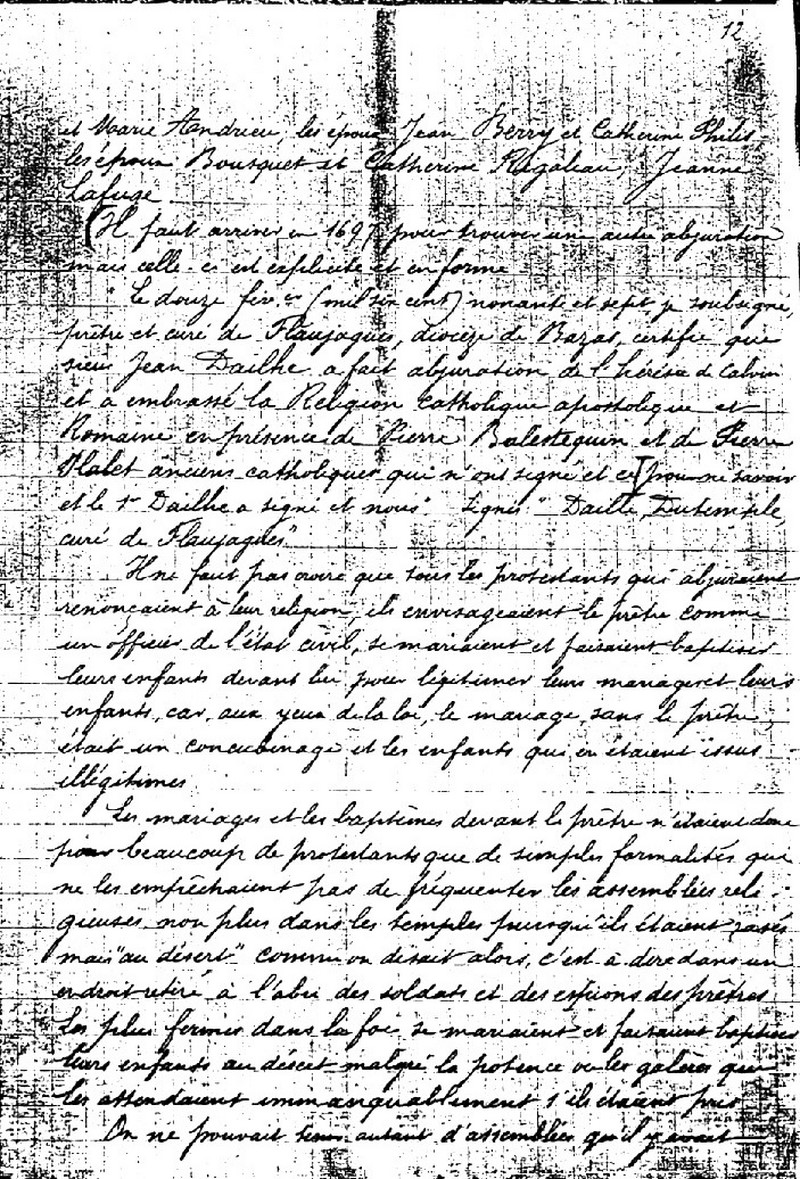 12
et Marie Andrieu, les époux Jean Berry et Catherine Philis,
les époux Bousquet et Catherine Rigaleau, Jeanne
Lafuge.
Il faut arriver en 1697 pour trouver une autre abjuration
mais celle-ci est explicite et en forme
" Le douze fév.er (mil six cent) nonante et sept je soubsigné,
prêtre et curé de Flaujagues, diocèze de Bazas, certifie que
sieur Jean Dailhe a fait abjuration de l'hérésie de Calvin
et a embrassé la Religion catholique apostolique et
Romaine en présence de Pierre Balesteguin et de Pierre
Blabet anciens catholiques qui n'ont signé et ce pour ne savoir
et le sr Dailhe a signé et nous". Signés "Dailhe, Dutemple,
curé de Flaujagues"
Il ne faut pas croire que tous les protestants qui abjuraient
renonçaient à leur religion, ils envisageaient le prêtre comme
un officier de l'état civil, se mariaient et faisaient baptiser
leurs enfants devant lui pour légitimer leurs mariages et leurs
enfants, car, aux yeux de la loi, le mariage, sans le prêtre,
était un concubinage et les enfants qui en étaient issus
illégitimes
Les mariages et les baptêmes devant le prêtre n'étaient donc
pour beaucoup de protestants que de simples formalités qui
ne les empêchaient pas de fréquenter les assemblées reli-
gieuses, non plus dans les temples puisqu'ils étaient rasés
mais "au désert" comme on disait alors, c'est à dire dans un
endroit retiré à l'abri des soldats et des espions des prêtres
Les plus fermes dans la foi se mariaient et faisaient baptiser
leurs enfants au désert malgré la potence ou les galères qui
les attendaient immanquablement s'ils étaient pris
On ne pouvait tenir autant d'assemblées qu'il y avait